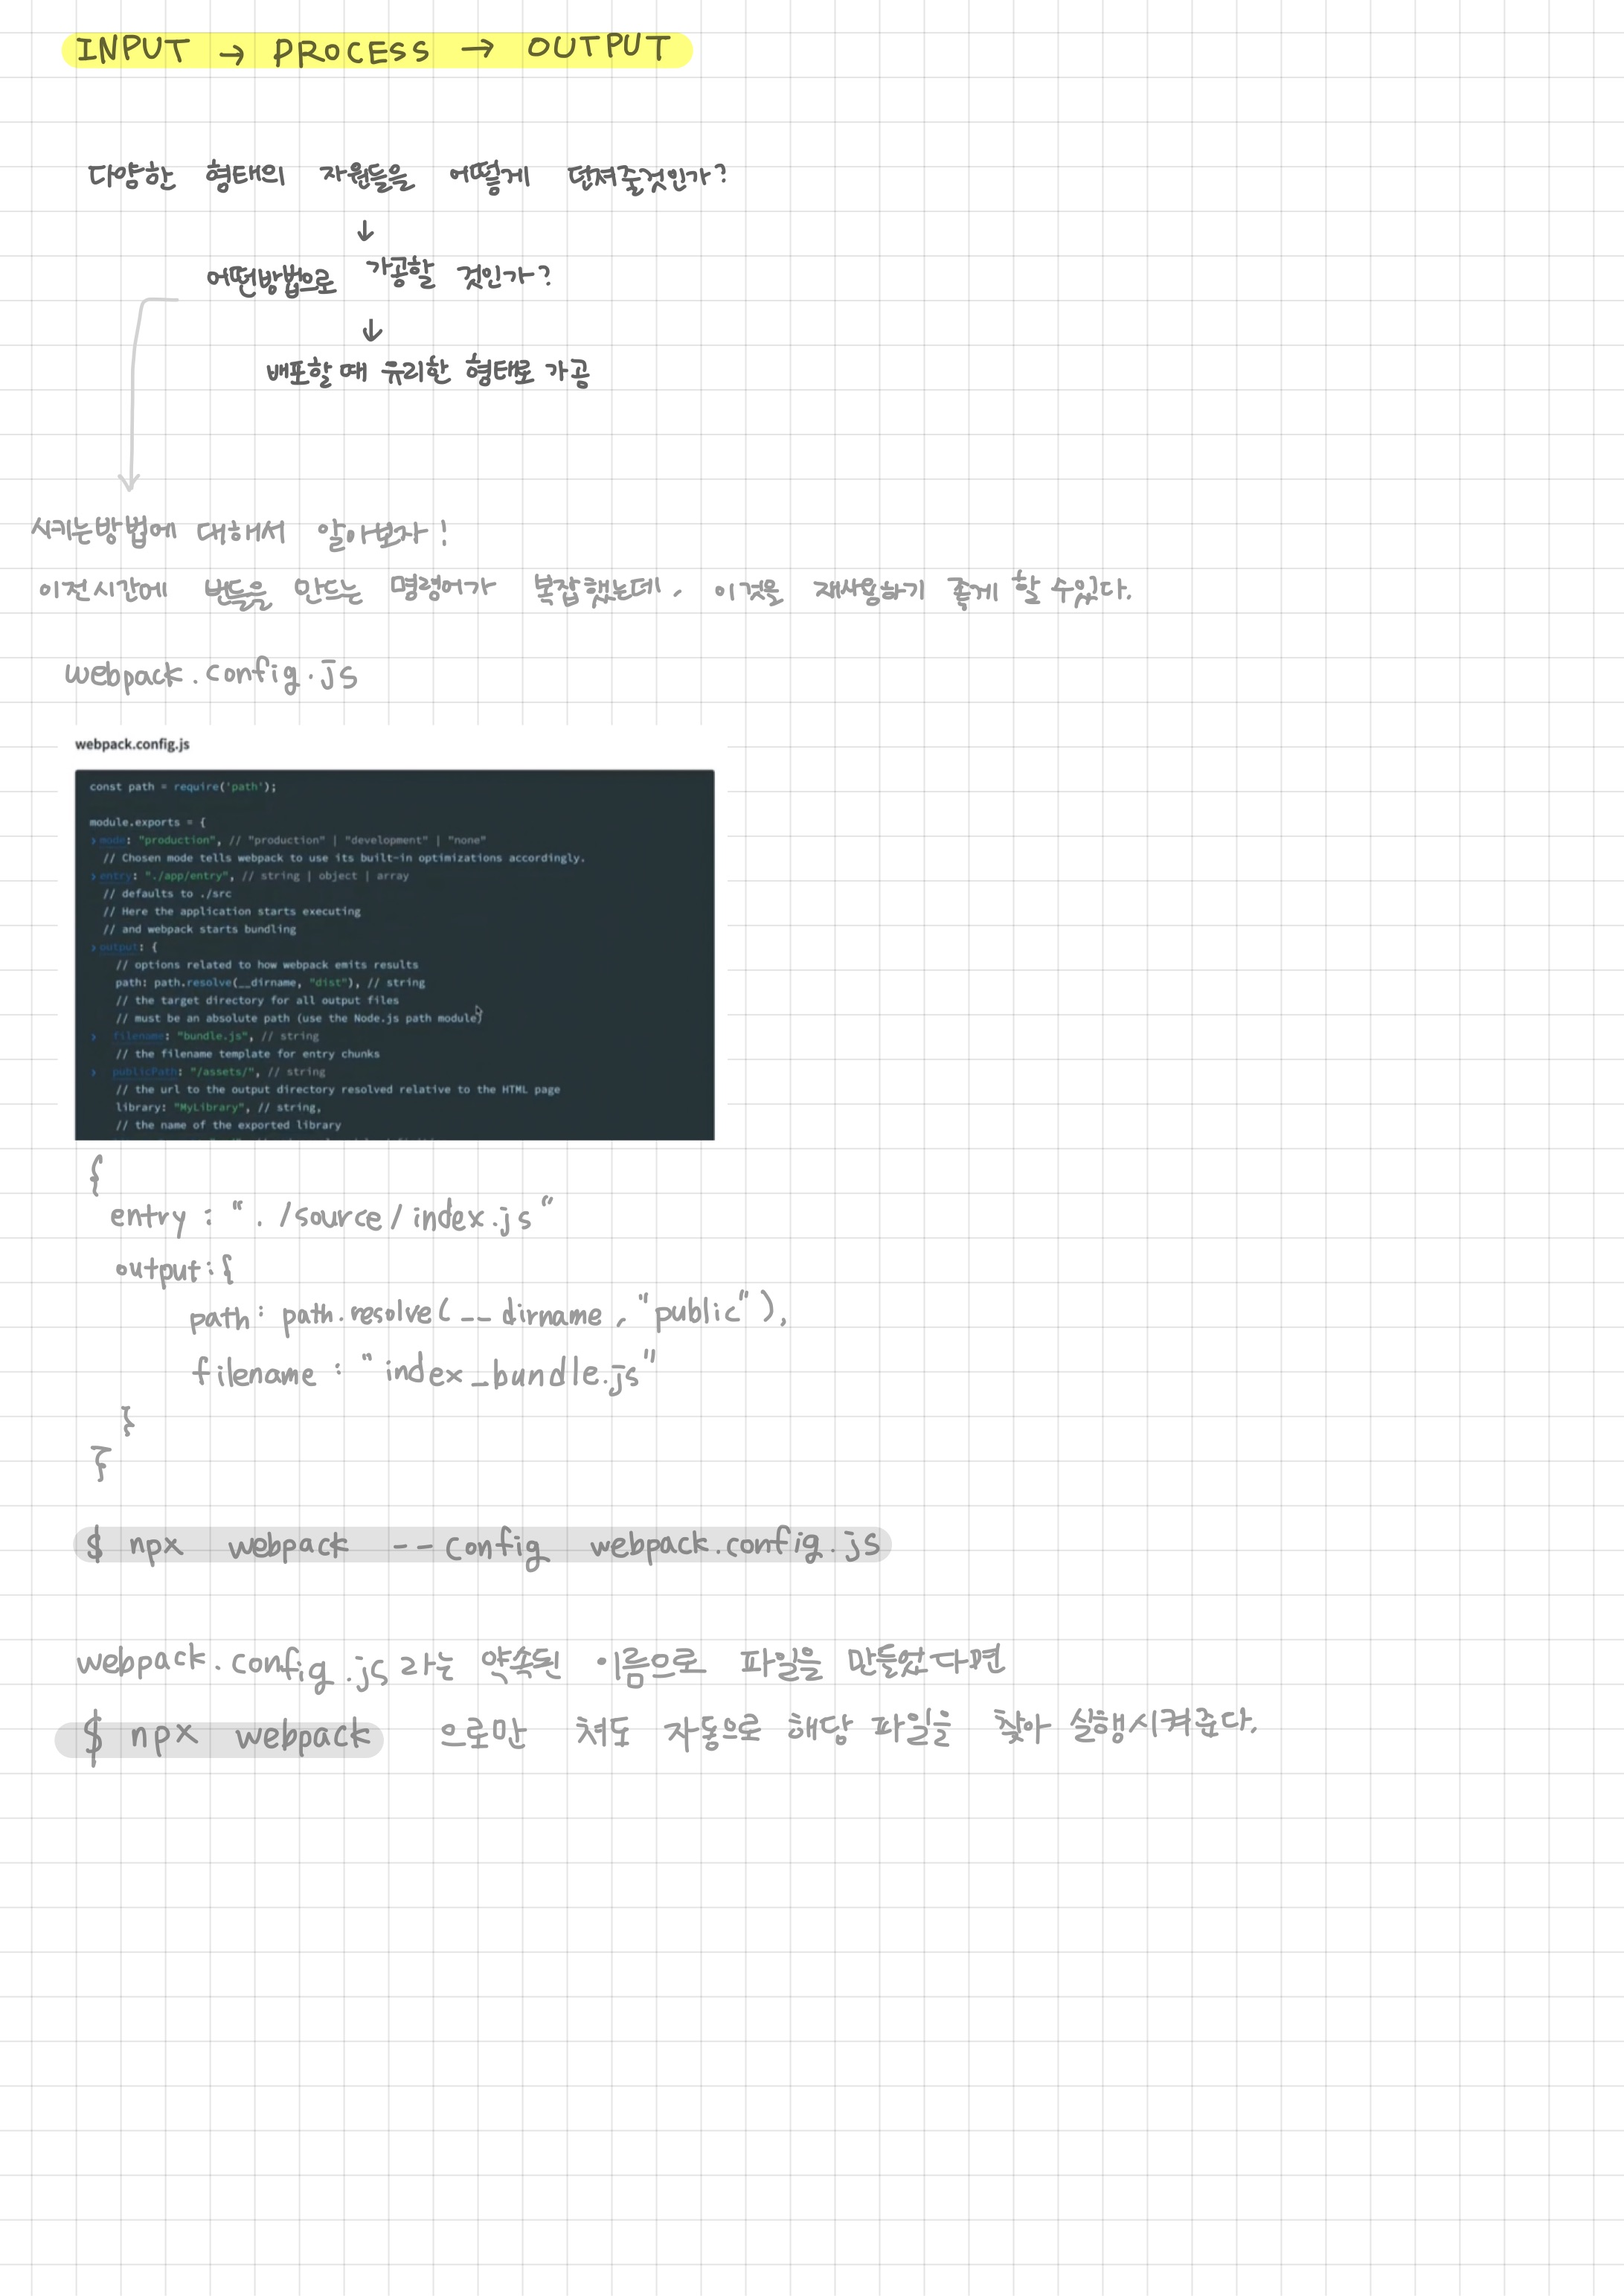 INPUT → PROCESS → OUTPUT
다양한 형태의 자원들을 어떻게 던져줄것인가?
↓
어떤방법으로 가공할 것인가?
↓
배포할 때 유리한 형태로 가공
시키는방법에 대해서 알아보자!
이전시간에 번들을 만드는 명령어가 복잡했는데, 이것을 재사용하기 좋게 할 수있다.
webpack.config.js
webpack.config.js
const path = require('path');
module.exports = {
mode: "production", // "production" | "development" | "none"
// Chosen mode tells webpack to use its built-in optimizations accordingly.
entry: "./app/entry", // string | object | array
// defaults to ./src
// Here the application starts executing
// and webpack starts bundling
output: {
// options related to how webpack emits results
path: path.resolve(__dirname, "dist"), // string
// the target directory for all output files
// must be an absolute path (use the Node.js path module)
filename: "bundle.js", // string
// the filename template for entry chunks
publicPath: "/assets/", // string
// the url to the output directory resolved relative to the HTML page
library: "MyLibrary", // string,
// the name of the exported library
{
entry : "./source/index.js"
output:{
path: path.resolve(__dirname, "public"),
filename : "index_bundle.js"
}
}
$ npx webpack --config webpack.config.js
webpack.config.js 라는 약속된 이름으로 파일을 만들었다면
$ npx webpack 으로만 쳐도 자동으로 해당 파일을 찾아 실행시켜준다.